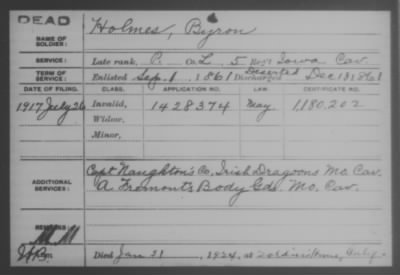 DEAD
Holmes, Byron
NAME OF SOLDIER:
SERVICE: Late rank, P. Co. L, 5 Reg't Iowa Cav.
TERM OF SERVICE: Enlisted Sep. 1, 1861 Discharged Deserted Dec 13 1861
DATE OF FILING. CLASS. APPLICATION NO. LAW. CERTIFICATE NO.
1917 July 26 Invalid, 1428374 May 1,180,202
Widow,
Minor,
ADDITIONAL SERVICES: Capt Naughton's Co. Irish Dragoons Mo. Cav.
A. Fremont's Body Gds. Mo. Cav.
REMARKS:
Died Jan 31, 1924, at Calif.